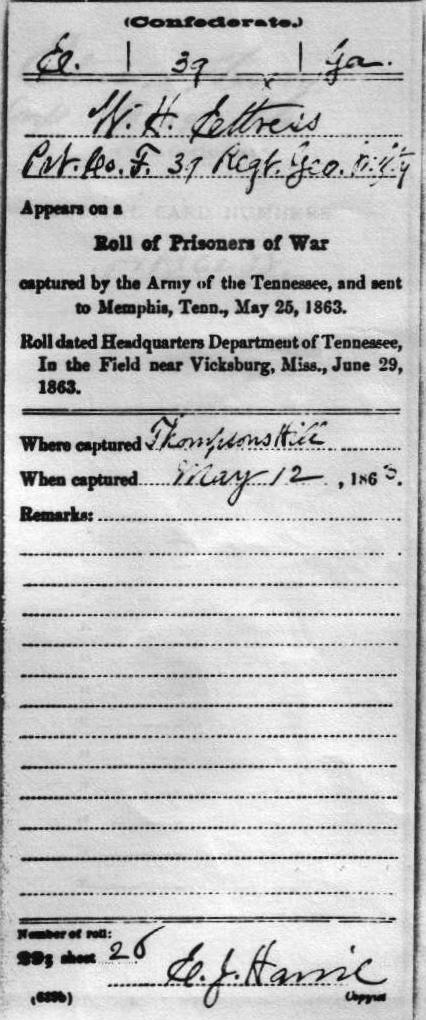 (Confederate.)
E. | 39 | Ga.
W. H. Ettress
Pvt. Co. F. 39 Regt. Geo. Infty
Appears on a
Roll of Prisoners of War
captured by the Army of the Tennessee, and sent
to Memphis, Tenn., May 25, 1863.
Roll dated Headquarters Department of Tennessee,
In the Field near Vicksburg, Miss., June 29,
1863.
Where captured Thompsons Hill
When captured May 12, 1863.
Remarks:
Number of roll:
223 sheet 26
(639b) Copyist